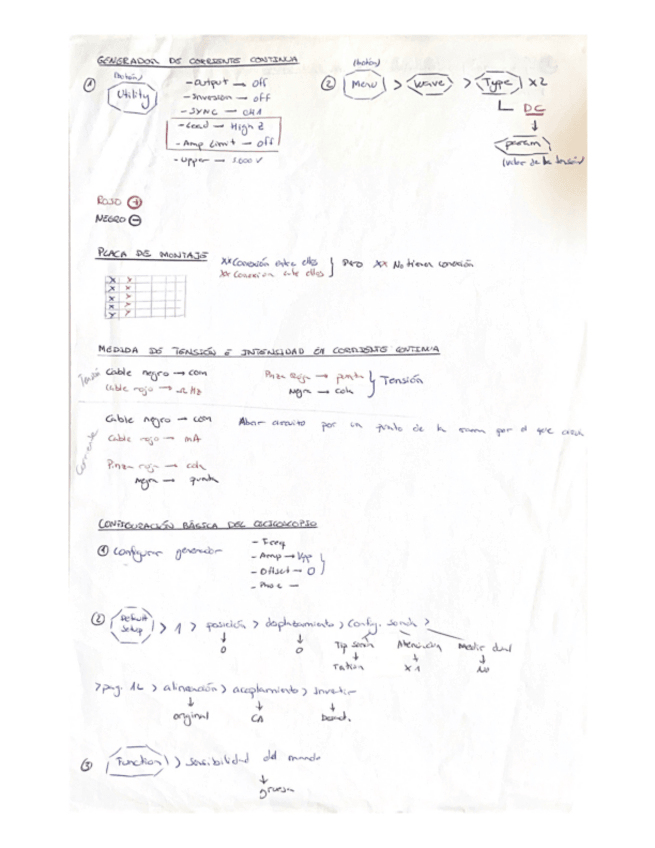 GENERADOR DE CORRIENTE CONTINUA
① (botón) Utility
- Output → Off
- Inversion → off
- SYNC → CH1
- Load → High Z
- Amp Limit → off
- Upper → 5.000 V
② (botón) Menu > Wave > Type x2
DC
↓
param
(valor de la tensión)
ROJO ⊕
NEGRO ⊖
PLACA DE MONTAJE
xx Conexión entre ellos } pero xx No tienen conexión
xx Conexion entre ellos
x x
x x
x x
x x
x x
MEDIDA DE TENSIÓN E INTENSIDAD EN CORRIENTE CONTINUA
Tensión Cable negro → com
Cable rojo → Ω Hz
Pinza Roja → punta } Tensión
Negra → cola
Corriente Cable negro → com
Cable rojo → mA
Abrir circuito por un punto de la rama por el que
Pinza roja → cola
negra → punta
CONFIGURACIÓN BÁSICA DEL OSCILOSCOPIO
① Configurar generador
- Freq
- Amp → Vpp
- Offset → 0
- Phase —
② Default Setup > 1 > posición > desplazamiento > Config. sonda >
↓ 0 ↓ 0 Tip sonda Atenuación Medir dual
↓ ↓ ↓
x1 No
> pag. 1L > alineación > acoplamiento > Invertir
↓ ↓ ↓
original CA
③ Function > sensibilidad del mando
↓
gruesa